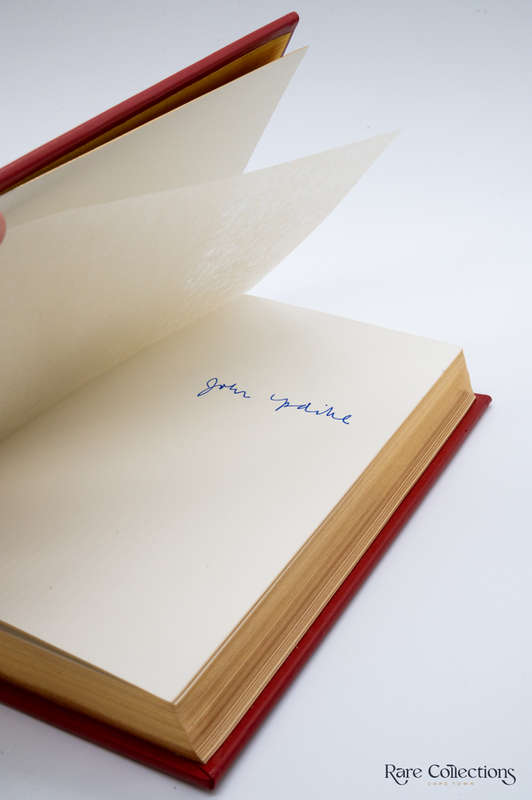 John Updike
Rare Collections
CAPE TOWN